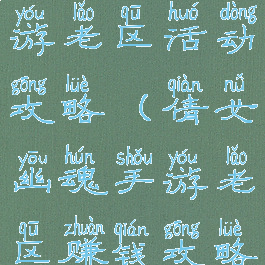 yóu lǎo qū huó dòng
游老区活动
gōng lüè qiàn nǚ
攻略(倩女
yōu hún shǒu yóu lǎo
幽魂手游老
qū zhuàn qián gōng lüè
区赚钱攻略